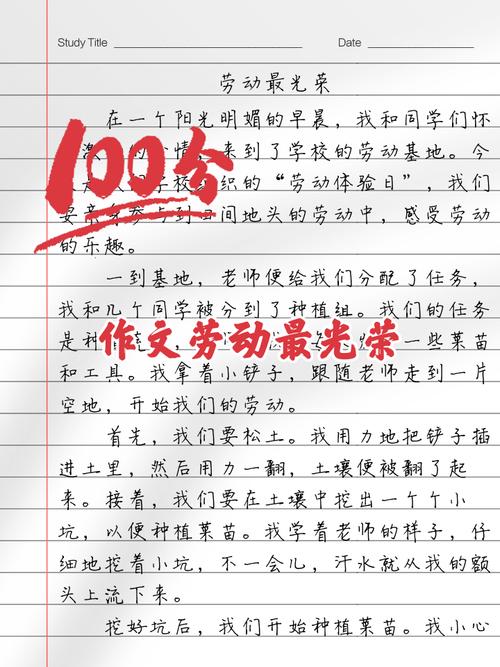 Study Title
Date
劳动最光荣
在一个阳光明媚的早晨，我和同学们怀
100分
激 的 情，来到了学校的劳动基地。今
是 学校组织的“劳动体验日”，我们
要亲身参与到田间地头的劳动中，感受劳动
的乐趣。
一到基地，老师便给我们分配了任务，
我和几个同学被分到了种植组。我们的任务
作文劳动最光荣
是种 一些菜苗
和工具。我拿着小铲子，跟随老师走到一片
空地，开始我们的劳动。
首先，我们要松土。我用力地把铲子插
进土里，然后用力一翻，土壤便被翻了起
来。接着，我们要在土壤中挖出一个个小
坑，以便种植菜苗。我学着老师的样子，仔
细地挖着小坑，不一会儿，汗水就从我的额
头上流下来。
挖好坑后，我们开始种植菜苗。我小心